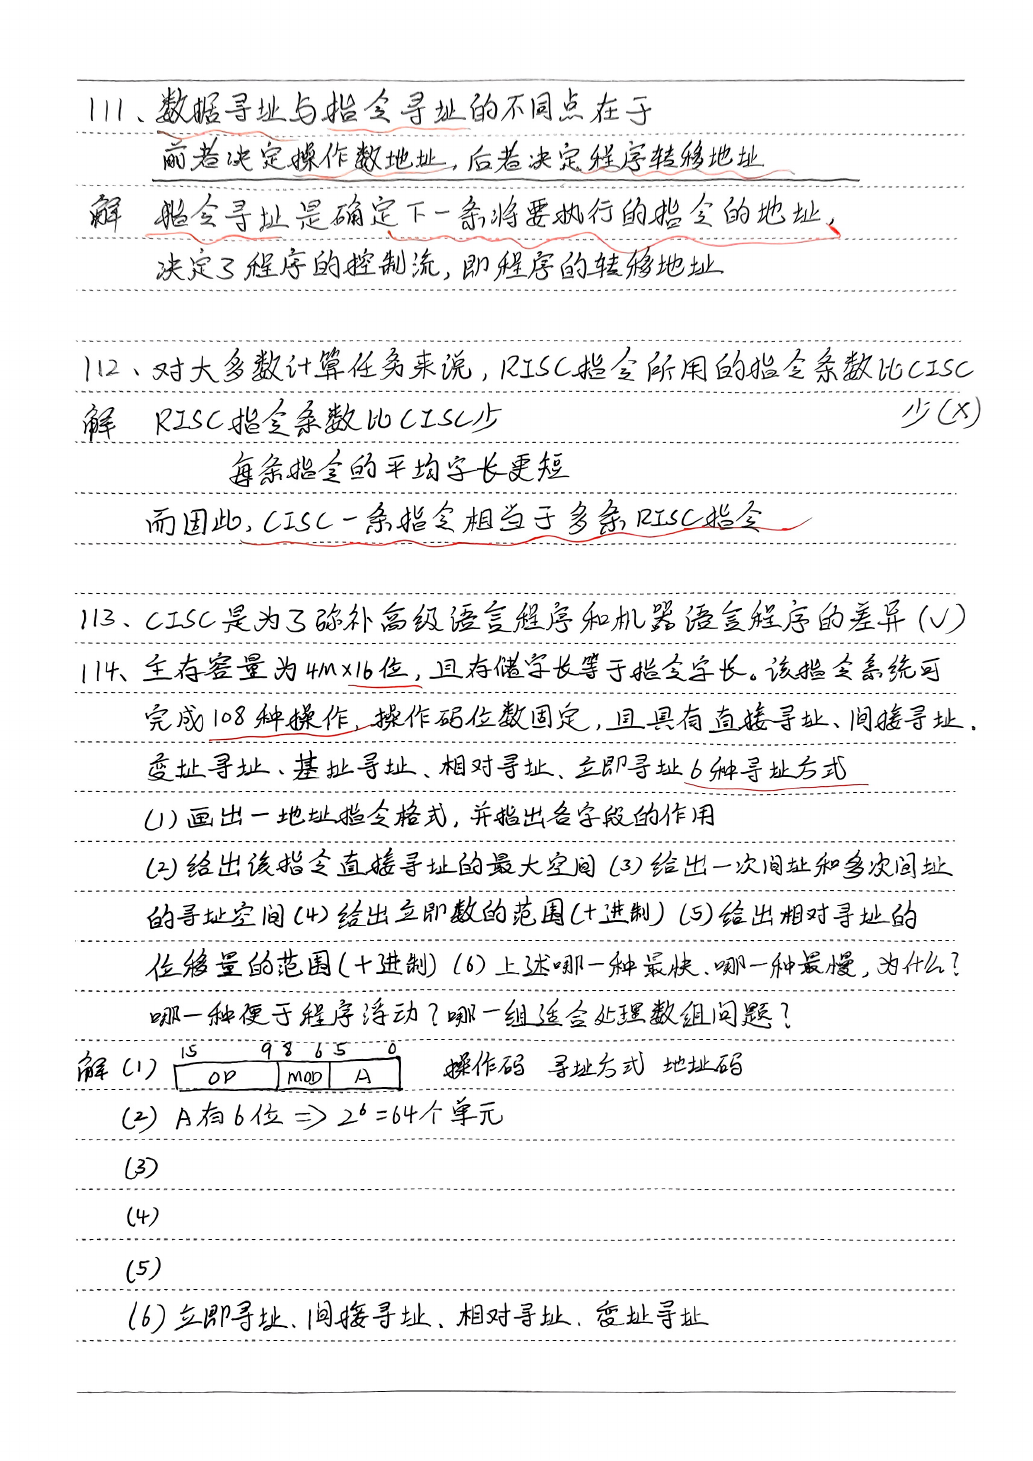 111、数据寻址与指令寻址的不同点在于
前者决定操作数地址，后者决定程序转移地址
解 指令寻址是确定下一条将要执行的指令的地址，
决定了程序的控制流，即程序的转移地址
112、对大多数计算任务来说，RISC指令所用的指令条数比CISC
少(×)
解 RISC指令条数比CISC少
每条指令的平均字长更短
而因此，CISC一条指令相当于多条RISC指令
113、CISC是为了弥补高级语言程序和机器语言程序的差异(√)
114、主存容量为4M×16位，且存储字长等于指令字长。该指令系统可
完成108种操作，操作码位数固定，且具有直接寻址、间接寻址、
变址寻址、基址寻址、相对寻址、立即寻址6种寻址方式
(1)画出一地址指令格式，并指出各字段的作用
(2)给出该指令直接寻址的最大空间(3)给出一次间址和多次间址
的寻址空间(4)给出立即数的范围(十进制)(5)给出相对寻址的
位移量的范围(十进制)(6)上述哪一种最快、哪一种最慢，为什么？
哪一种便于程序浮动？哪一组适合处理数组问题？
15 9 8 6 5 0
解(1) OP MOD A 操作码 寻址方式 地址码
(2) A有6位 => 2⁶=64个单元
(3)
(4)
(5)
(6)立即寻址、间接寻址、相对寻址、变址寻址